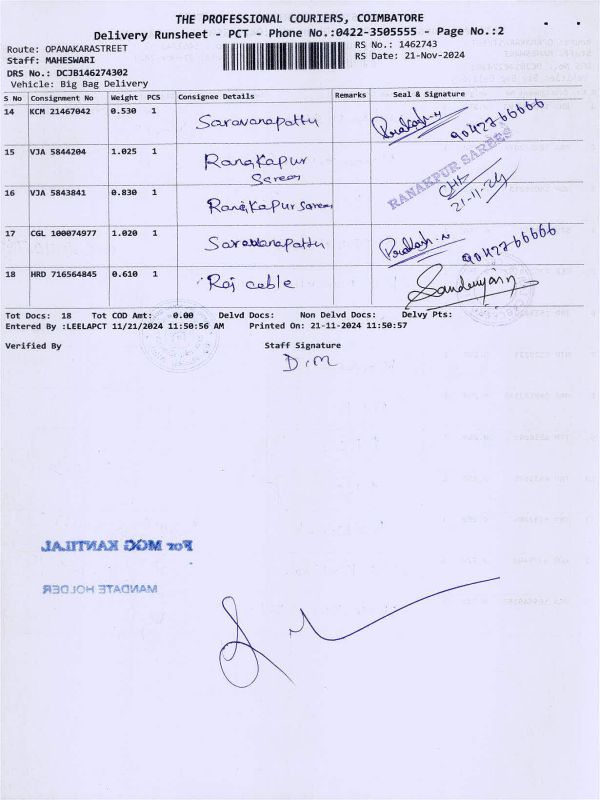 THE PROFESSIONAL COURIERS, COIMBATORE
Delivery Runsheet - PCT - Phone No.:0422-3505555 - Page No.:2
Route: OPANAKARASTREET
RS No.: 1462743
Staff: MAHESWARI
RS Date: 21-Nov-2024
DRS No.: DCJB146274302
Vehicle: Big Bag Delivery
S No Consignment No Weight PCS Consignee Details Remarks Seal & Signature
14 KCM 21467042 0.530 1 Saravanapattu Prakash.n 90427-66666
15 VJA 5844204 1.025 1 Ranakapur Sarees
RANAKPUR SAREES
16 VJA 5843841 0.830 1 Ranakapur Sarees 21-11-24
17 CGL 100074977 1.020 1 Saravanapattu Prakash.n 90427-66666
18 HRD 716564845 0.610 1 Raj cable
Tot Docs: 18 Tot COD Amt: 0.00 Delvd Docs: Non Delvd Docs: Delvy Pts:
Entered By :LEELAPCT 11/21/2024 11:50:56 AM Printed On: 21-11-2024 11:50:57
Verified By Staff Signature
D.M
For MGG KANTILAL
MANDATE HOLDER